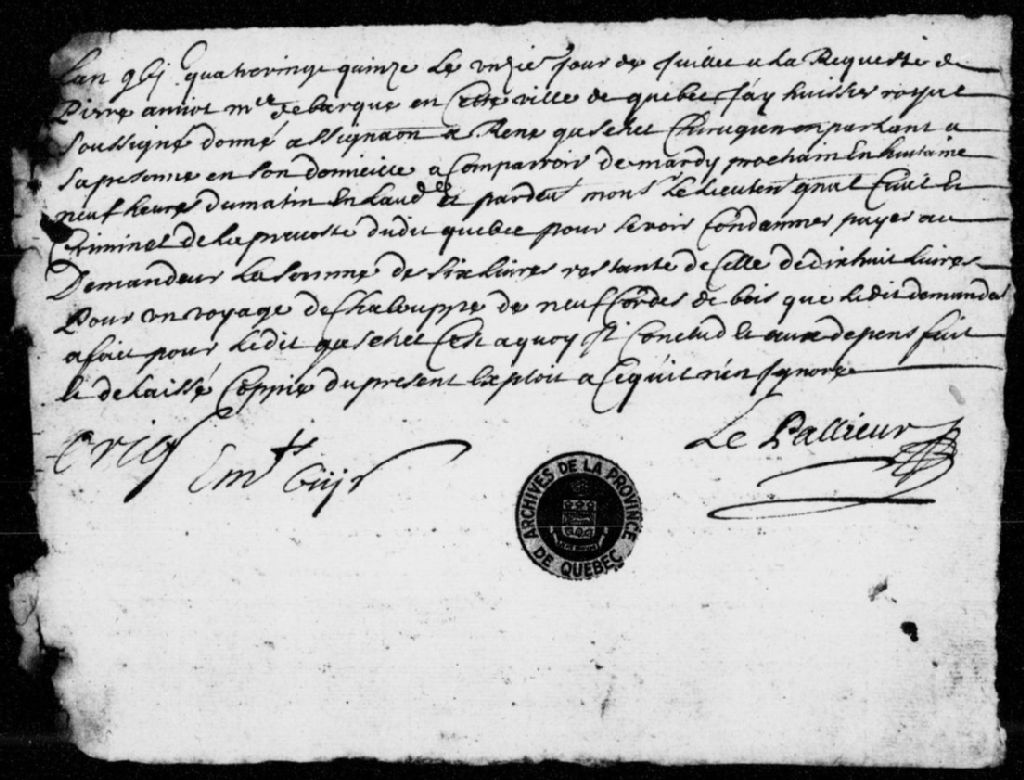 Lan gbj quatrevingt quinze le unzie Jour de Juillet a la Requeste de
Pierre amiot mre de barque en Cette ville de quebec Jay huissier royal
Soussigné donné assignaon a René gaschet Chirugien en parlant a
Sa personne en son domicille a Comparroir de mardy prochain En huitaine
neuf heures du matin En laude et pardevt monsr le lieutent gnal Civil Et
Criminel de la prevosté dudit quebec pour se voir Condamner payer au
Demandeur la somme de six livres restante de Celle de dix huit livres
Pour un voyage de Chalouppe de neuf Cordes de bois que ledit demandr
a fait pour ledit gaschet Cest a quoy Il Conclud et aux depens fait
et delaissé Coppie du present Exploit a Ce quil nen Ignore
Le Pallieur
ARCHIVES DE LA PROVINCE DE QUEBEC